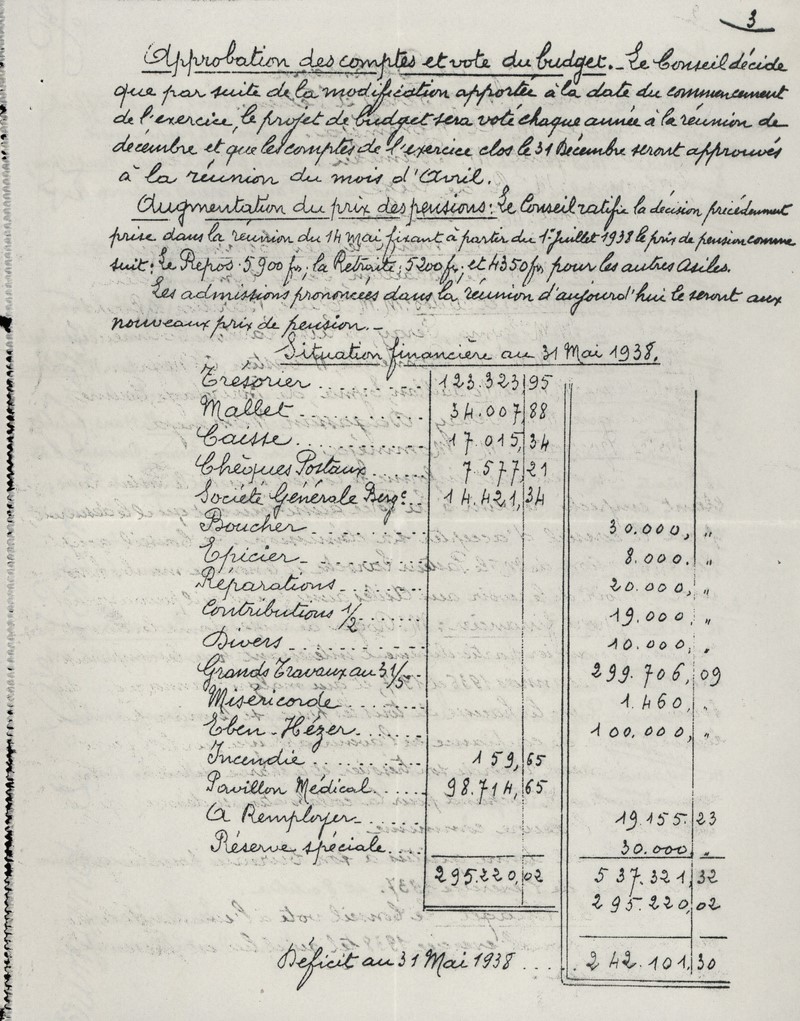 3
Approbation des comptes et vote du budget._ Le Conseil décide
que par suite de la modification apportée à la date du commencement
de l'exercice, le projet de budget sera voté chaque année à la réunion de
décembre et que les comptes de l'exercice clos le 31 Décembre seront approuvés
à la réunion du mois d'Avril.
Augmentation du prix des pensions: Le Conseil ratifie la décision précédemment
prise dans la réunion du 14 Mai fixant à partir du 1er Juillet 1938 le prix de pension comme
suit: Le Repos: 5900 fr; la Retraite; 5200 fr; et 4350 fr pour les autres Asiles.
Les admissions prononcées dans la réunion d'aujourd'hui le seront aux
nouveaux prix de pension._
Situation financière au 31 Mai 1938.
Trésorier ........ 123.323 95
Mallet ........ 34.007, 88
Caisse ........ 17.015, 34
Chèques Postaux ...... 7.577, 21
Société Générale Bergc ... 14.421, 34
Boucher ........ 30.000, "
Epicier ........ 8.000. "
Réparations ...... 20.000, "
Contributions 1/2 ...... 19.000, "
Divers ........ 10.000, "
Grands Travaux au 31/5 .. 299.706, 09
Miséricorde ...... 1.460, "
Eben-Hézer ...... 100.000, "
Incendie ........ 159, 65
Pavillon Médical ..... 98.714, 65
A Remployer ..... 19.155. 23
Réserve spéciale .... 30.000, "
295.220, 02 537.321, 32
295.220, 02
Déficit au 31 Mai 1938 ..... 242.101, 30